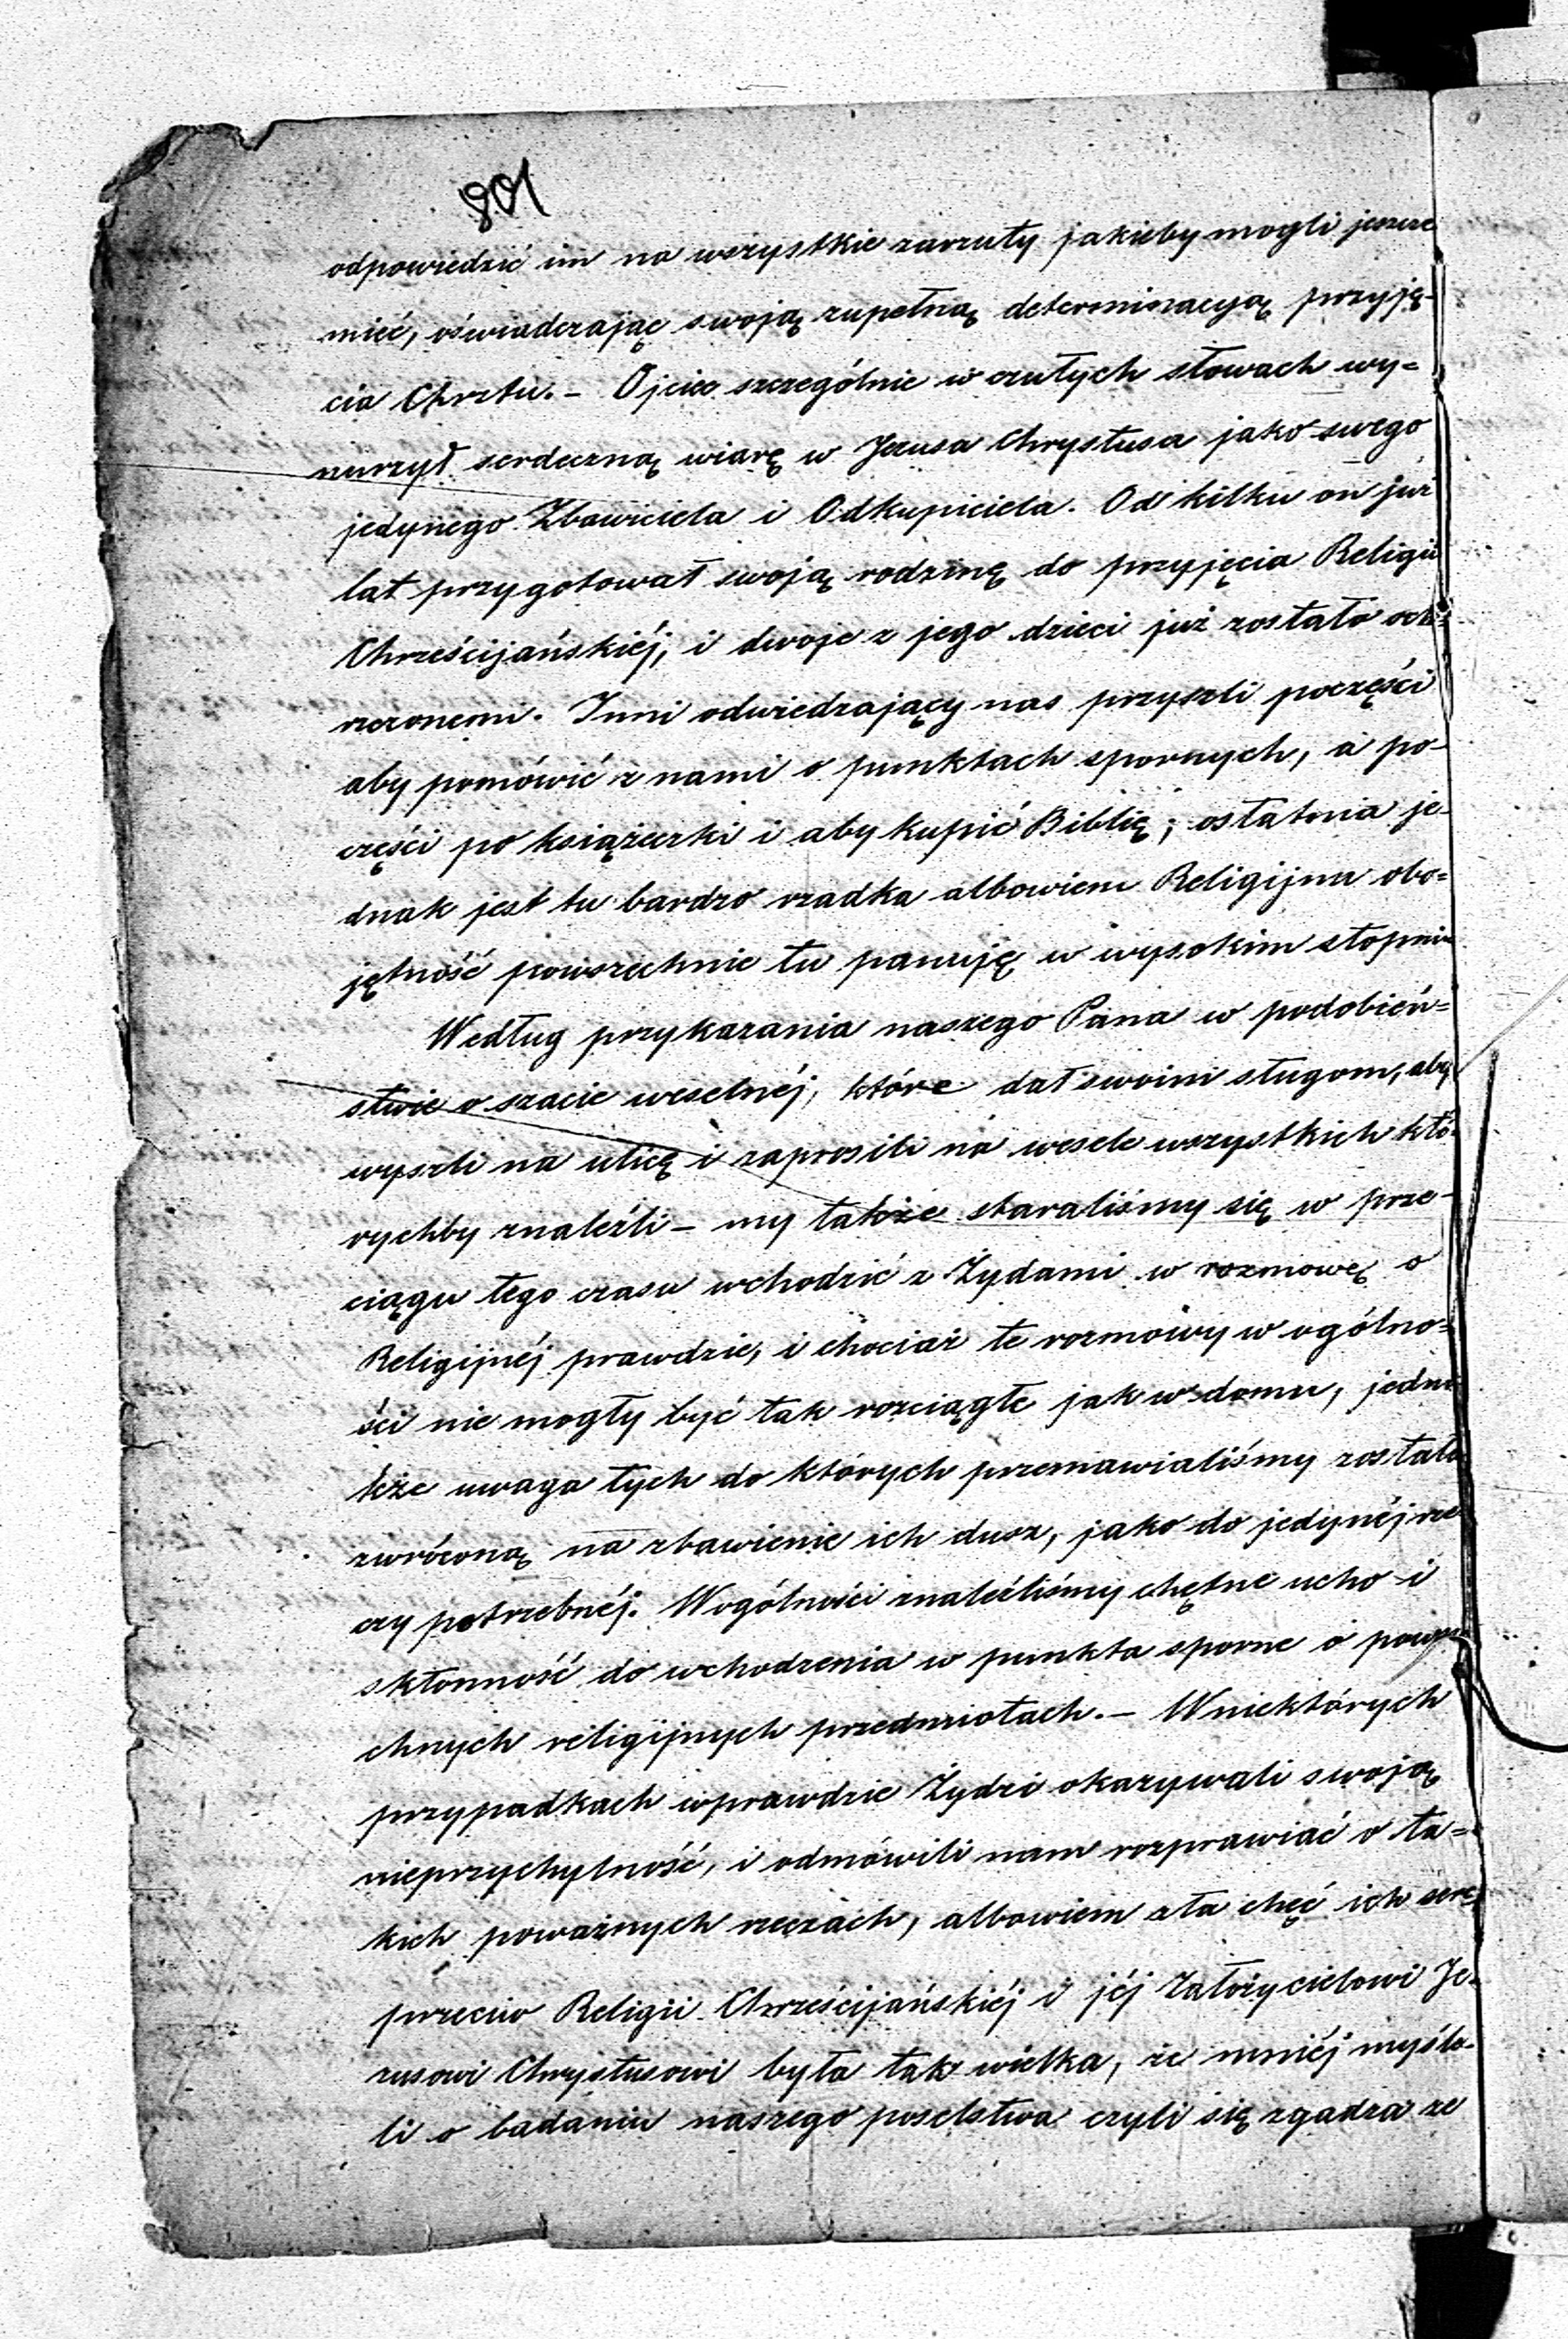 108
odpowiedzić im na wszystkie zarzuty jakieby mogli jeszcze
mieć, oświadczając swoją zupełną determinacyą przyję-
cia Chrztu. – Ojciec szczególnie w czułych słowach wy=
nurzył serdeczną wiarę w Jezusa Chrystusa jako swego
jedynego Zbawiciela i Odkupiciela. Od kilku on już
lat przygotował swoją rodzinę do przyjęcia Religii
Chrześcijańskiéj, i dwoje z jego dzieci już zostało och=
rzczonemi. Inni odwiedzający nas przyszli poczęści
aby pomówić z nami o punktach spornych, a po-
części po książeczki i aby kupić Biblię; ostatnia je-
dnak jest tu bardzo rzadka albowiem Religijna obo=
jętność powszechnie tu panuję w wysokim stopniu
Według przykazania naszego Pana w podobień=
stwie o szacie weselnéj, które dał swoim sługom, aby
wyszli na ulicę i zaprosili na wesele wszystkich któ-
rychby znaleźli – my także staraliśmy się w prze-
ciągu tego czasu wchodzić z Żydami w rozmowę o
Religijnéj prawdzie, i chociaż te rozmowy w ogólno=
ści nie mogły być tak rozciągłe jak w domu, jedna
kże uwaga tych do których przemawialiśmy została
zwróconą na zbawienie ich dusz, jako do jedynéj rze
czy potrzebnéj. Wogólności znaleźliśmy chętne ucho i
skłonność do wchodzenia w punkta sporne o powsze
chnych religijnych przedmiotach. – W niektórych
przypadkach wprawdzie Żydzi okazywali swoją
nieprzychylność, i odmówili nam rozprawiać o ta=
kich poważnych rzeczach, albowiem zła chęć ich serc
przeciw Religii Chrześcijańskiéj i jéj Założycielowi Je-
zusowi Chrystusowi była tak wielka, że mniéj myśle-
li o badaniu naszego poselstwa czyli się zgadza ze